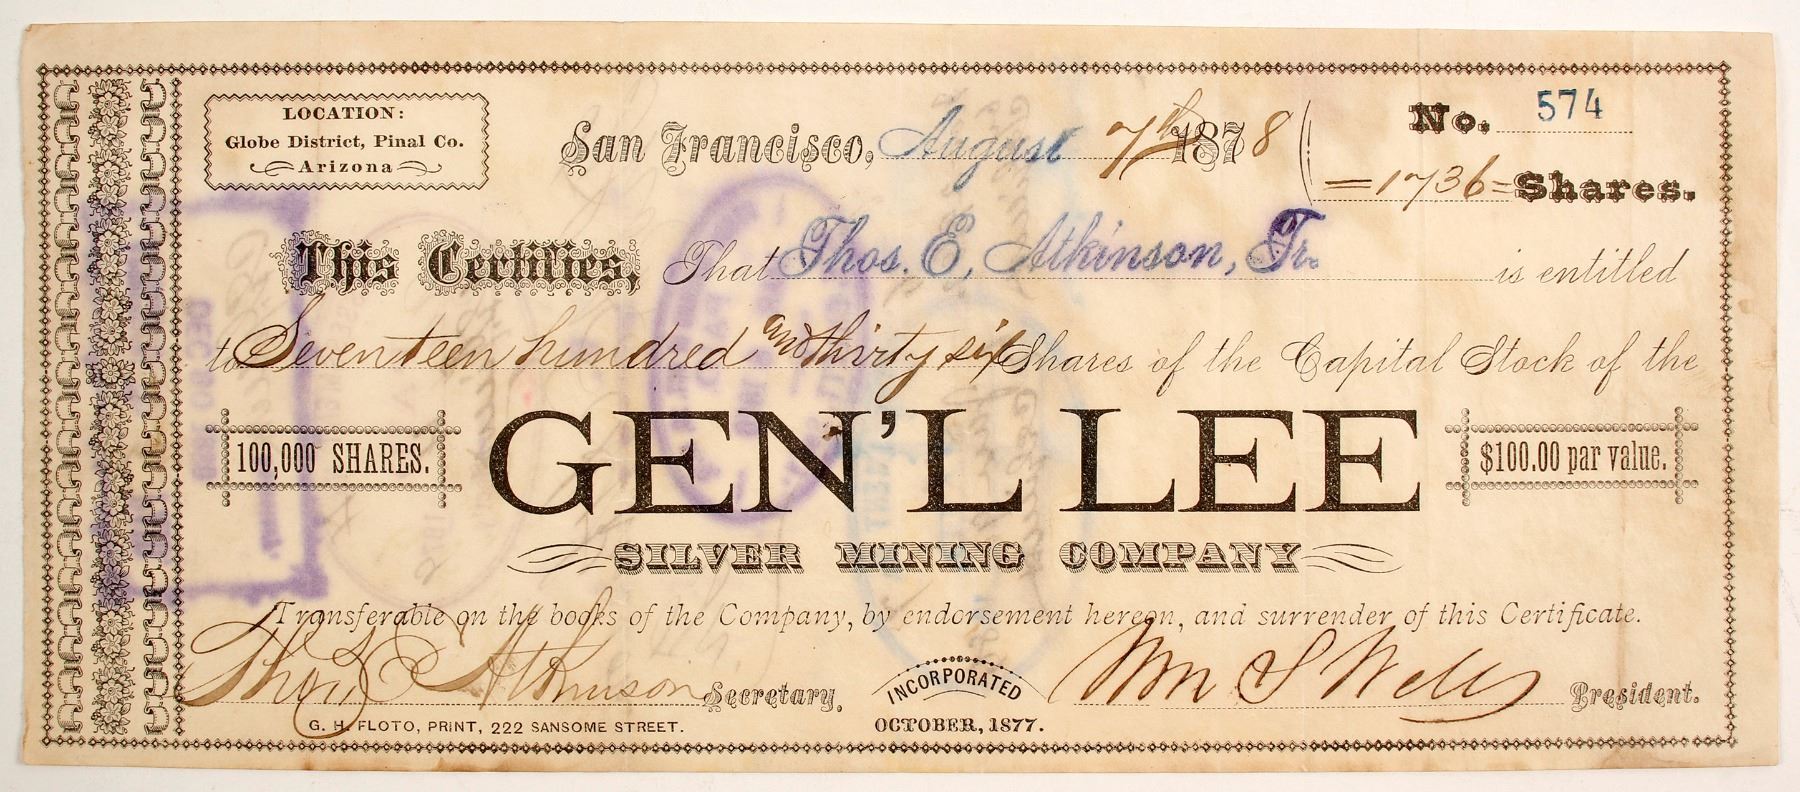 LOCATION:
Globe District, Pinal Co.
Arizona
San Francisco, August 7th 1878
No. 574
=1736= Shares.
This Certifies, That Thos. E. Atkinson, Tr. is entitled
to Seventeen hundred and thirty six Shares of the Capital Stock of the
100,000 SHARES.
GEN'L LEE
$100.00 par value.
SILVER MINING COMPANY
Transferable on the books of the Company, by endorsement hereon, and surrender of this Certificate.
Thos E Atkinson Secretary.
INCORPORATED
OCTOBER, 1877.
Wm S Wells President.
G. H. FLOTO, PRINT, 222 SANSOME STREET.